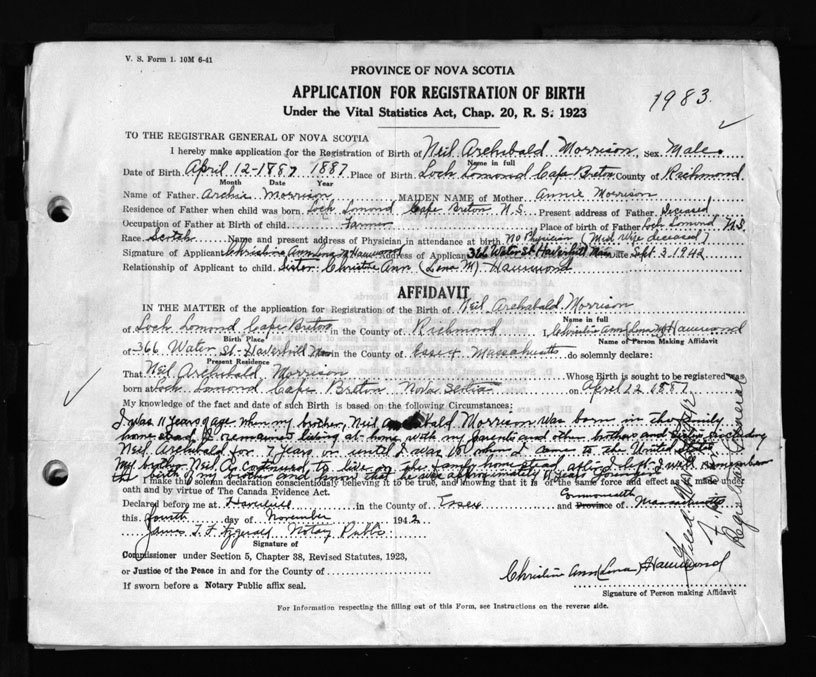 V. S. Form 1. 10M 6-41
PROVINCE OF NOVA SCOTIA
APPLICATION FOR REGISTRATION OF BIRTH
1983.
Under the Vital Statistics Act, Chap. 20, R. S. 1923
TO THE REGISTRAR GENERAL OF NOVA SCOTIA
I hereby make application for the Registration of Birth of Neil Archibald Morrison, Sex Male
Name in full
Date of Birth April 12-1887 1887 Place of Birth Loch Lomond Cape Breton County of Richmond
Month Date Year
Name of Father Archie Morrison MAIDEN NAME of Mother Annie Morrison
Residence of Father when child was born Loch Lomond Cape Breton N.S. Present address of Father deceased
Occupation of Father at Birth of child Farmer Place of birth of Father Loch Lomond N.S.
Race Scotch Name and present address of Physician in attendance at birth no Physician (Mid wife deceased)
Signature of Applicant Christine Ann Hammond Address of Applicant 366 Water St Haverhill Date Sept 3 1942
Relationship of Applicant to child Sister Christine Ann (Lena M) Hammond
AFFIDAVIT
IN THE MATTER of the application for Registration of the Birth of Neil Archibald Morrison
Name in full
of Loch Lomond Cape Breton in the County of Richmond I, Christine Ann Hammond
Birth Place Name of Person Making Affidavit
of 366 Water St-Haverhill Mass in the County of Essex Massachusetts do solemnly declare:
Present Residence
That Neil Archibald Morrison Whose Birth is sought to be registered was
born at Loch Lomond Cape Breton Nova Scotia on April 12 1887
My knowledge of the fact and date of such Birth is based on the following Circumstances:
I was 11 years of age when my brother, Neil Archibald Morrison was born in the family
home and I remained living at home with my parents and other brothers and sisters including
Neil Archibald for 7 years or until I was 18 when I came to the United States
My brother Neil A. continued to live on the after I left. I well remember
the birth of my brother and know that he was approximately 7 years
I make this solemn declaration conscientiously believing it to be true, and knowing that it is of the same force and effect as if made under
oath and by virtue of The Canada Evidence Act.
Declared before me at Haverhill in the County of Essex and Province of Commonwealth Massachusetts
this fourth day of November 1942
James T. Fitzgerald Notary Public
Signature of
Commissioner under Section 5, Chapter 38, Revised Statutes, 1923,
or Justice of the Peace in and for the County of
If sworn before a Notary Public affix seal.
Christine Ann (Lena) Hammond
Signature of Person making Affidavit
For Information respecting the filling out of this Form, see Instructions on the reverse side.
Filed
Registrar General